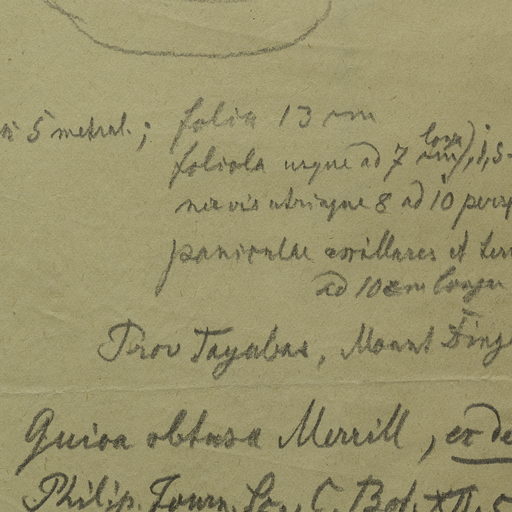 5 metral. ; folia 13 cm
foliola usque ad 7 cm longa), 1,5-
nervis utrinque 8 ad 10
paniculae axillares et
ad 10 cm longae
Prov Tayabas, Mount
Guioa obtusa Merrill, ex
Philip. Journ. Sc., C. Bot. XII.